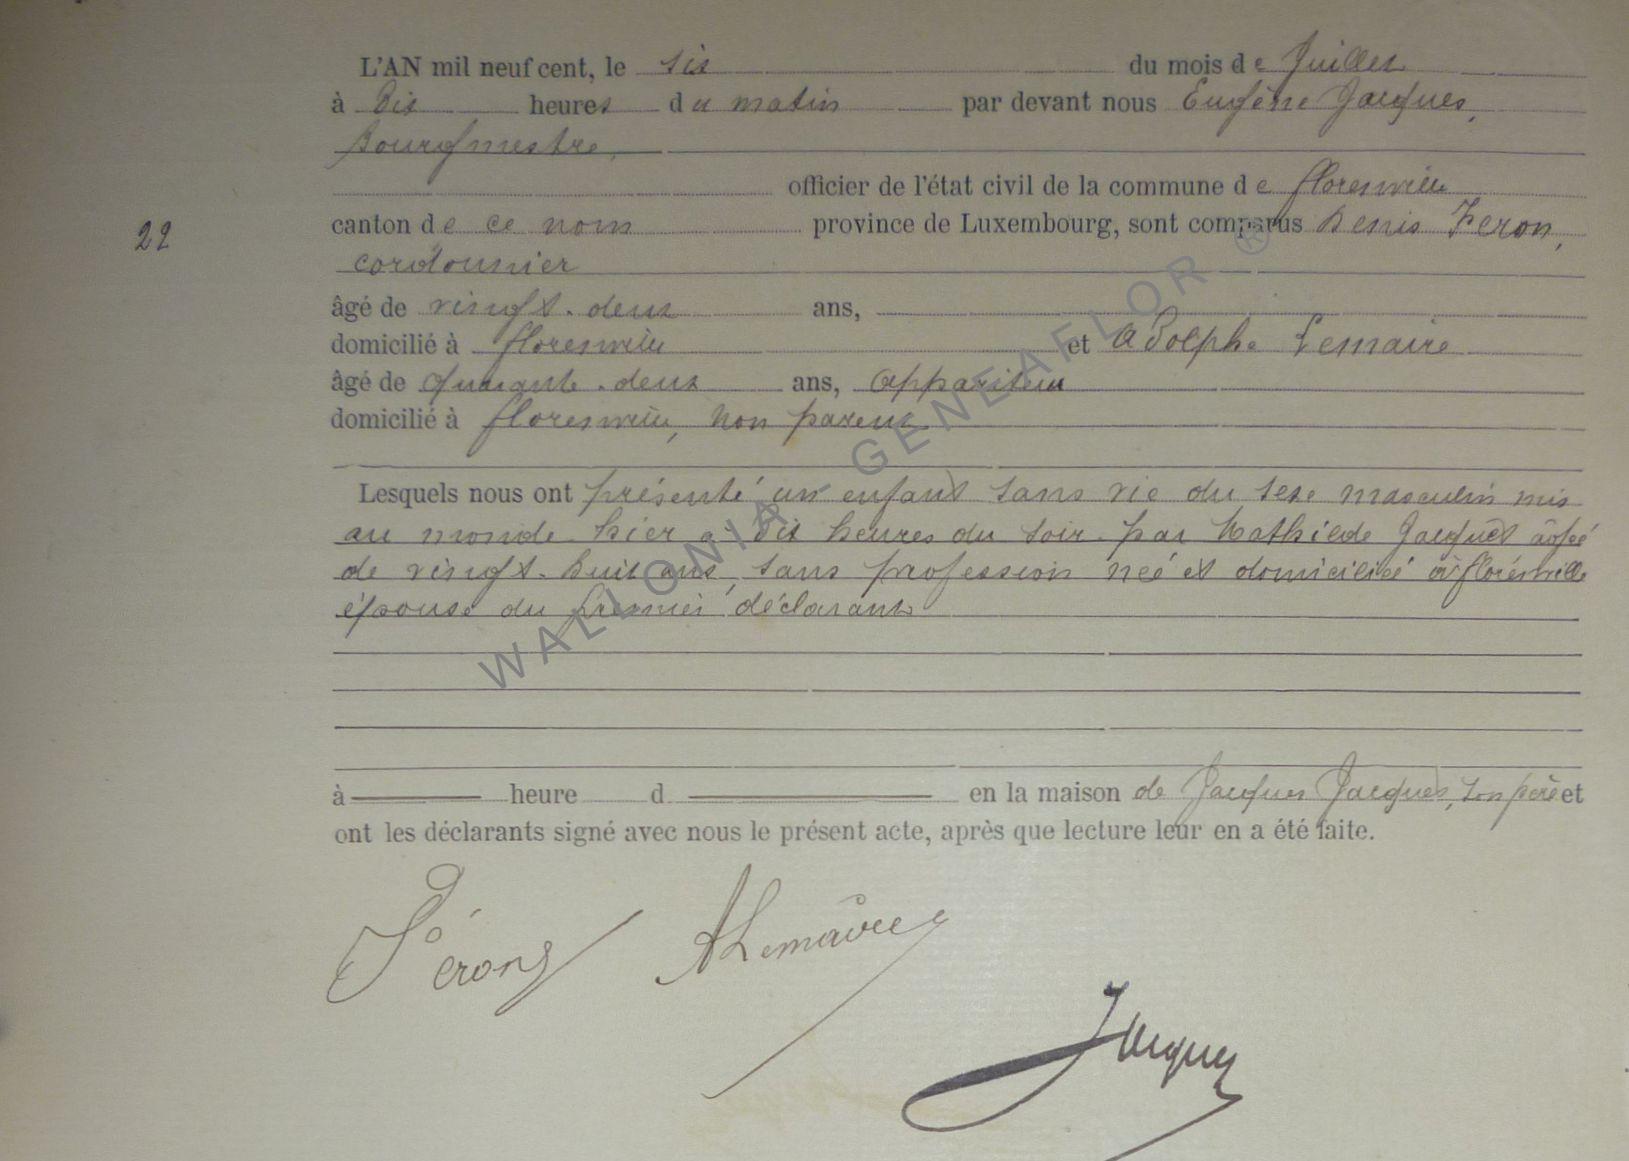 L'AN mil neuf cent, le six du mois de Juillet
à dix heures du matin par devant nous Eugène Jacques,
Bourgmestre,
officier de l'état civil de la commune de florenville
22 canton de ce nom province de Luxembourg, sont comparus Denis Feron,
cordonnier
âgé de vingt-deux ans,
domicilié à florenville et Adolphe Lemaire
âgé de quarante-deux ans, appariteur
domicilié à florenville, non parent
Lesquels nous ont présenté un enfant sans vie du sexe masculin mis
au monde hier à dix heures du soir par Mathilde Jacques âgée
de vingt-huit ans, sans profession née et domiciliée à florenville
épouse du premier déclarant
à heure d en la maison de Jacques Jacques, son père et
ont les déclarants signé avec nous le présent acte, après que lecture leur en a été faite.
Férons ALemaire
Jacques
WALLONIA - GENEAFLOR ®